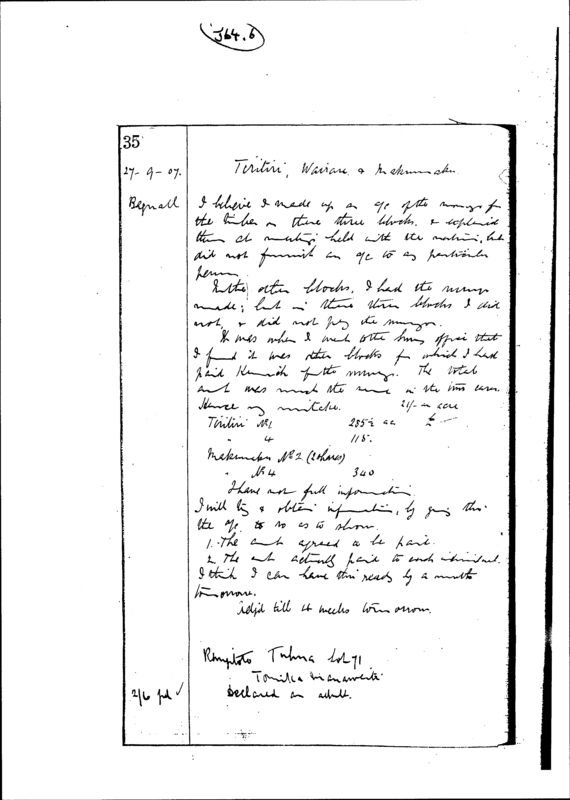 J64.6
35
27-9-07.
Tiritiri, Wairare, &
Begnall
I believe I made up an a/c of the moneys for
the timber on these three blocks, & explained
them at meetings held with the natives, but
did not furnish an a/c to any particular
person.
In the other blocks, I had the surveys
made; but in these three blocks I did
not, & did not pay the surveyor.
It was when I went to the survey office that
I found it was other blocks for which I had
paid for the surveys. The total
amt was much the same in the two cases.
Hence my mistake. 2/- an acre
Tiritiri No 1 285½ ac £
" 4 115.
No 2 (2 shares)
" No 4 340
I have not full information
I will try & obtain information, by going thro'
the a/c so as to show.
1. The amt agreed to be paid.
2. The amt actually paid to each individual.
I think I can have this ready by a month
tomorrow.
Adjd till 4 weeks tomorrow.
2/6 pd ✓
Declared an adult.